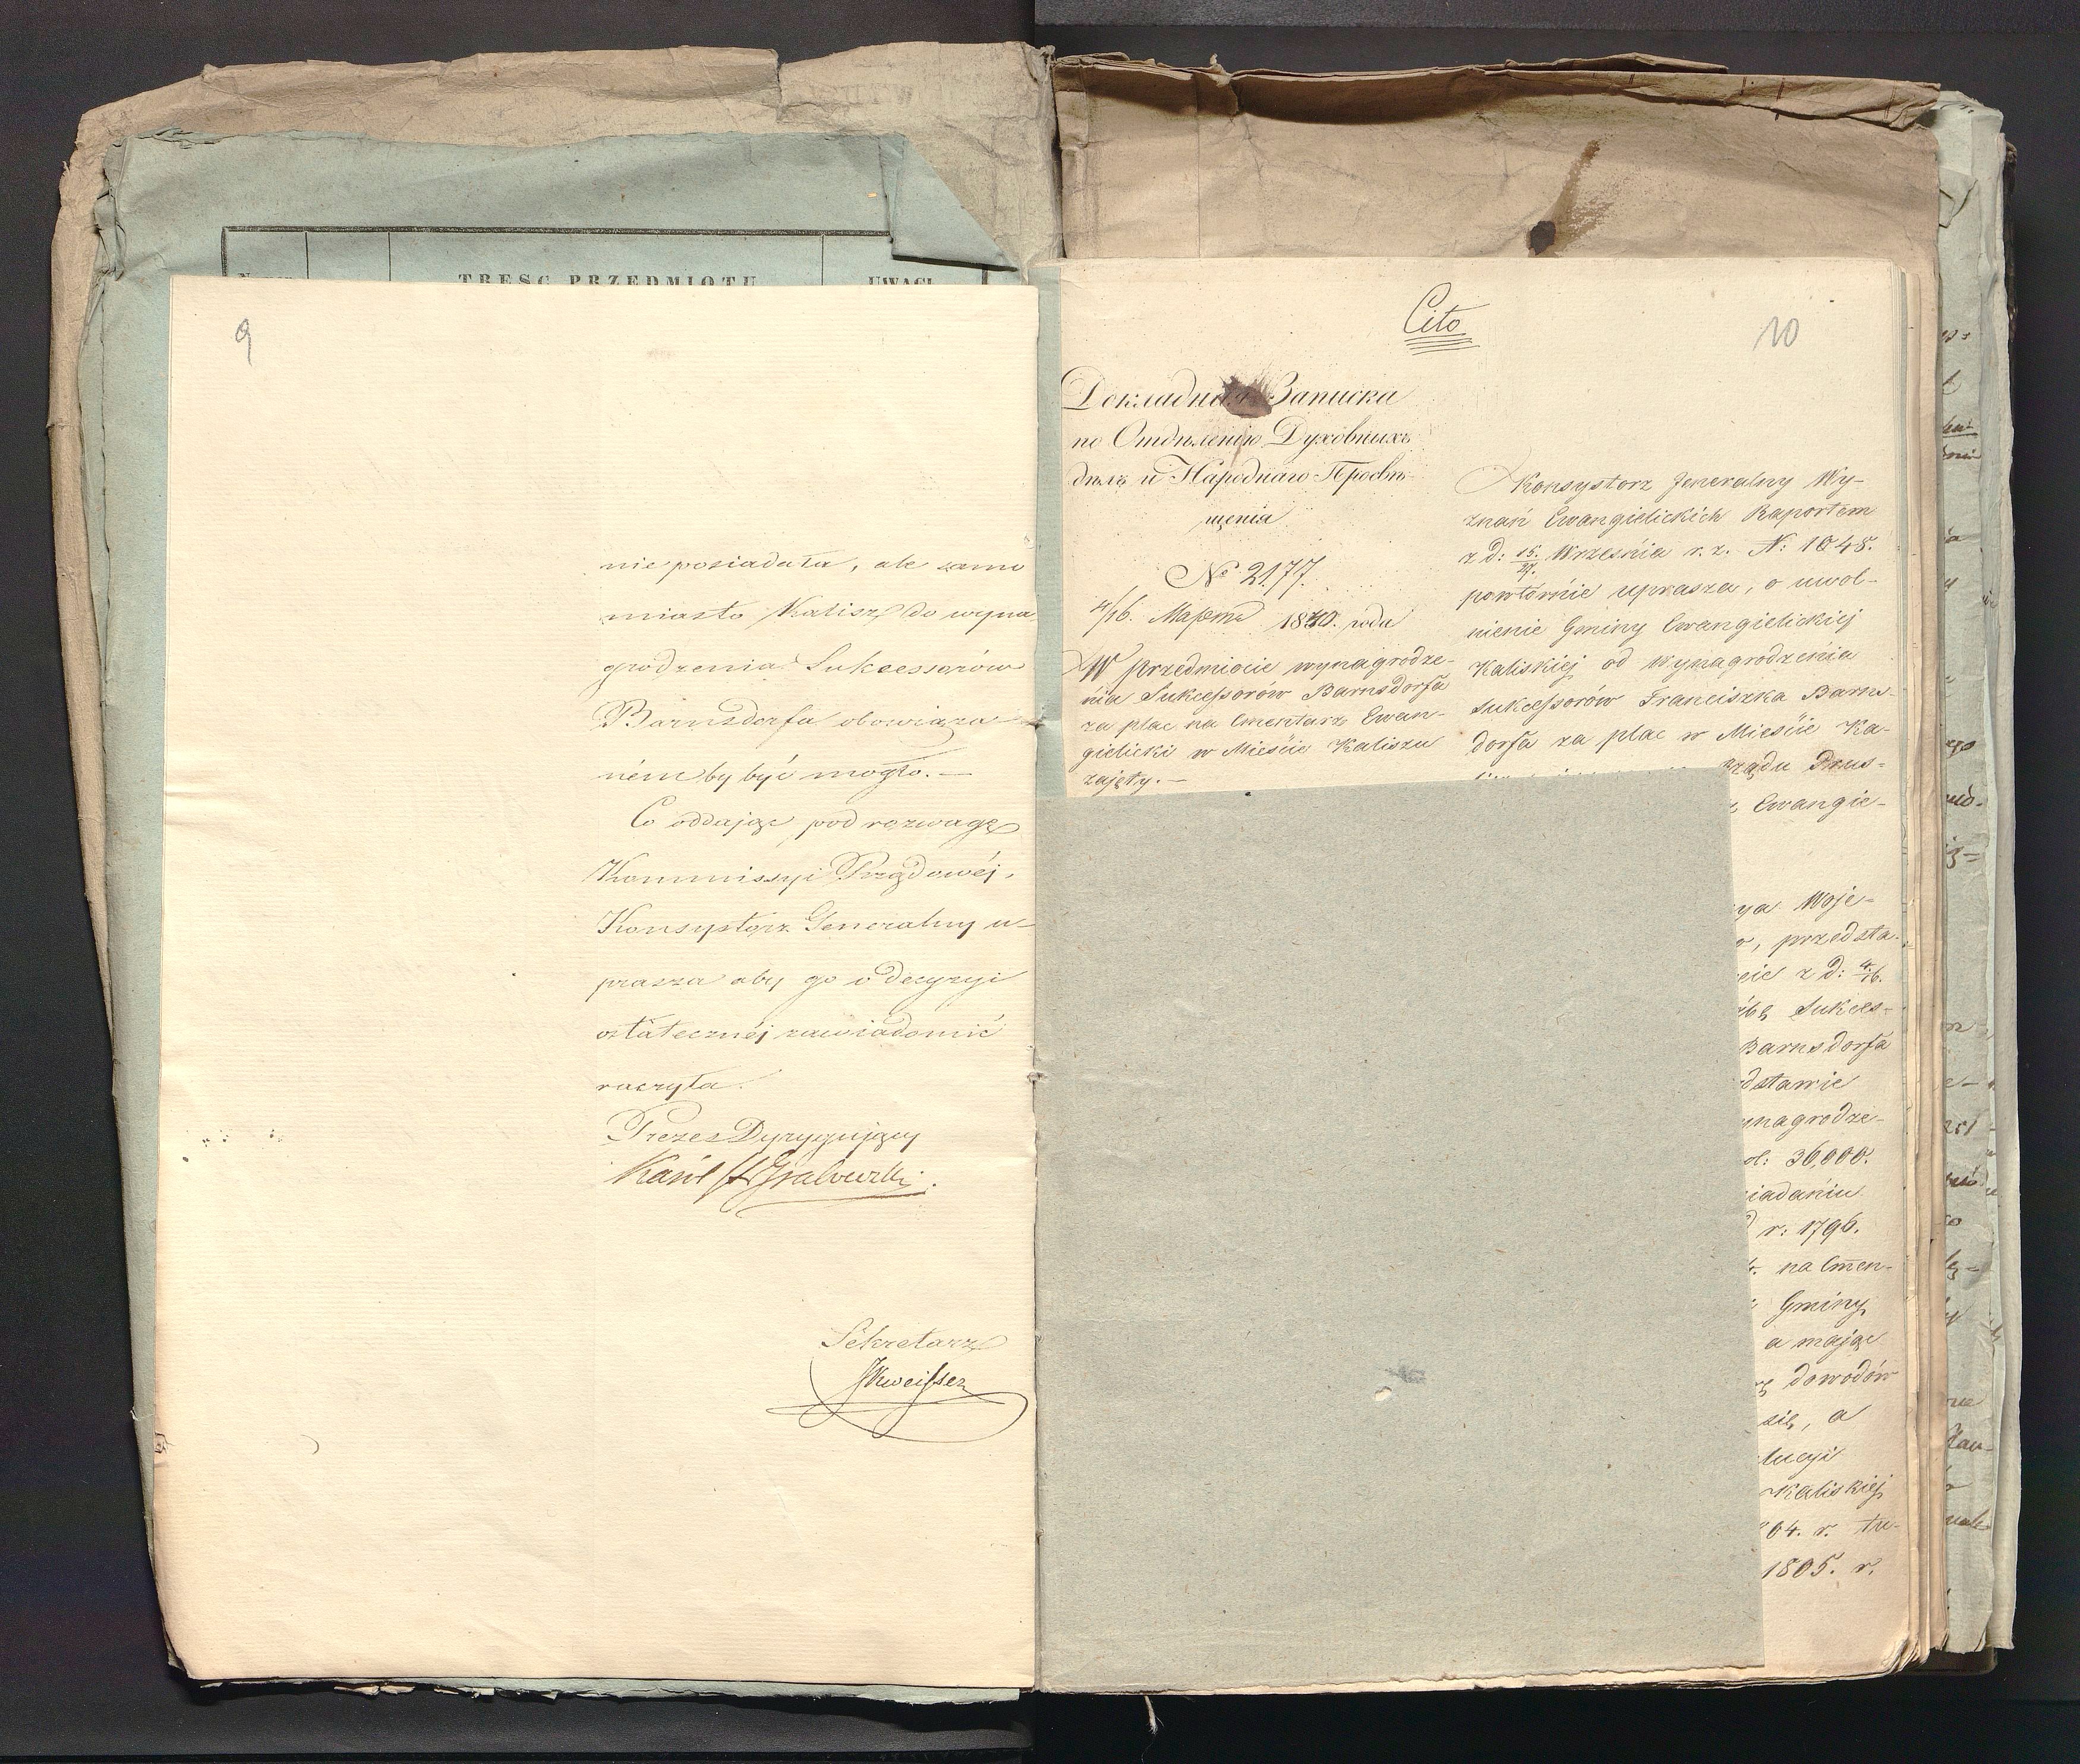 TRESC PRZEDMIOTU
UWAGI
9
nie posiadała, ale samo
miasto Kalisz do wyna
grodzenia Sukcessorów
Barnsdorfa obowiąza
ném by być mogło. —
Co oddając pod rozwagę
Kommissyi Rządowéj,
Konsystorz Generalny u-
prasza aby go o decyzyi
ostatecznéj zawiadomić
raczyła.
Prezes Dyrygujący
Karól Grabowski.
Sekretarz
Cito
10
Докладная Записка
по Отдѣленію Духовныхъ
дѣлъ и Народнаго Просвѣ-
щенія
№ 2177.
4/16. Марта 1840. года
W przedmiocie wynagrodze-
nia Sukcessorów Barnsdorfa
za plac na Cmentarz Ewan-
gielicki w Mieście Kaliszu
zajęty. —
Konsystorz Jeneralny Wy-
znań Ewangielickich Raportem
z d: 15/27. Września r. z. N: 1045.
powtórnie uprasza, o uwol-
nienie Gminy Ewangielickiej
Kaliskiej od wynagrodzenia
sukcessorów Franciszka Barns-
dorfa za plac w Mieście Ka-
rządu Prus-
Ewangie-
ya Woje-
o, przedsta-
cie z d: 4/16.
źbę Sukces-
Barnsdorfa
dstawie
ynagrodze-
ol: 36,000.
iadaniu
r: 1796.
na Cmen-
Gminy
a mając
dowodów
się, a
lucyi
Kaliskiej
04. r. tu-
1805. r.